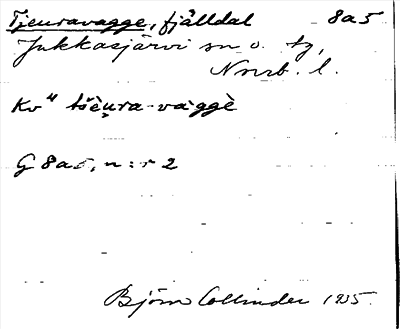 Tjeuravagge, fjälldal 8a5
Jukkasjärvi sn o. tg,
Nrrb. l.
Kv" tšèu̯ra-vaggè
G 8a5, n:r 2
Björn Collinder 1935.